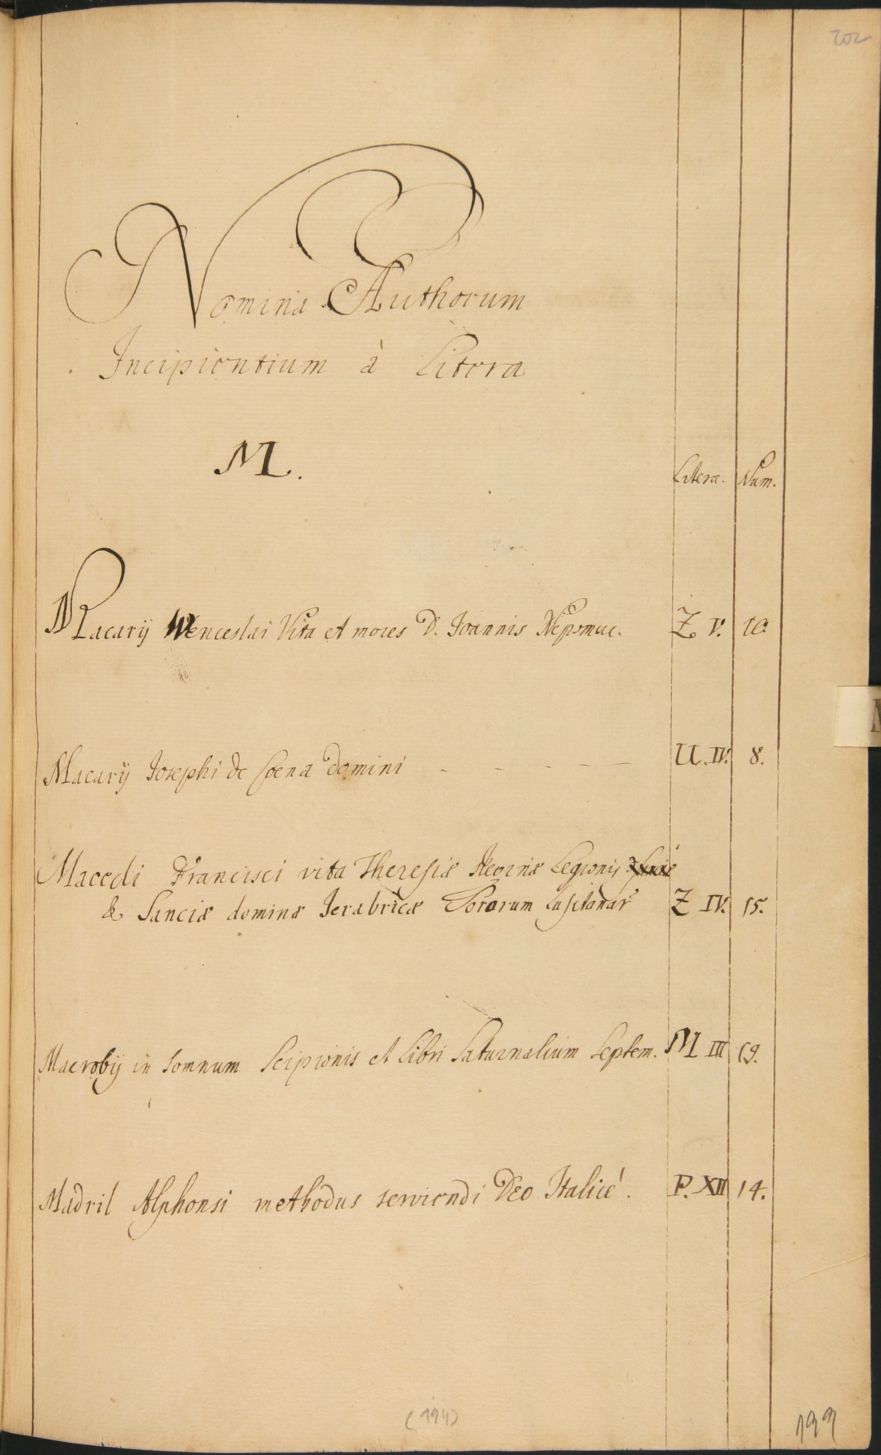 202
Nomina Authorum
Incipientium à Litera
M.
Litera. Num.
Macarij Wenceslai Vita et mores D. Joannis Nepomuc. Z V. 10.
Macarij Josephi de Coena Domini - - - - - U. IV. 8.
Macedi Francisci vita Theresiæ Reginæ Legionis
& Sanciæ dominæ Jerabricæ Sororum Lusitanar Z IV. 15.
Macrobij in Somnum Scipionis et Libri Saturnalium Septem. M III 19.
Madril Alphonsi methodus serviendi Deo Italicé. P. XII 14.
(194)
199